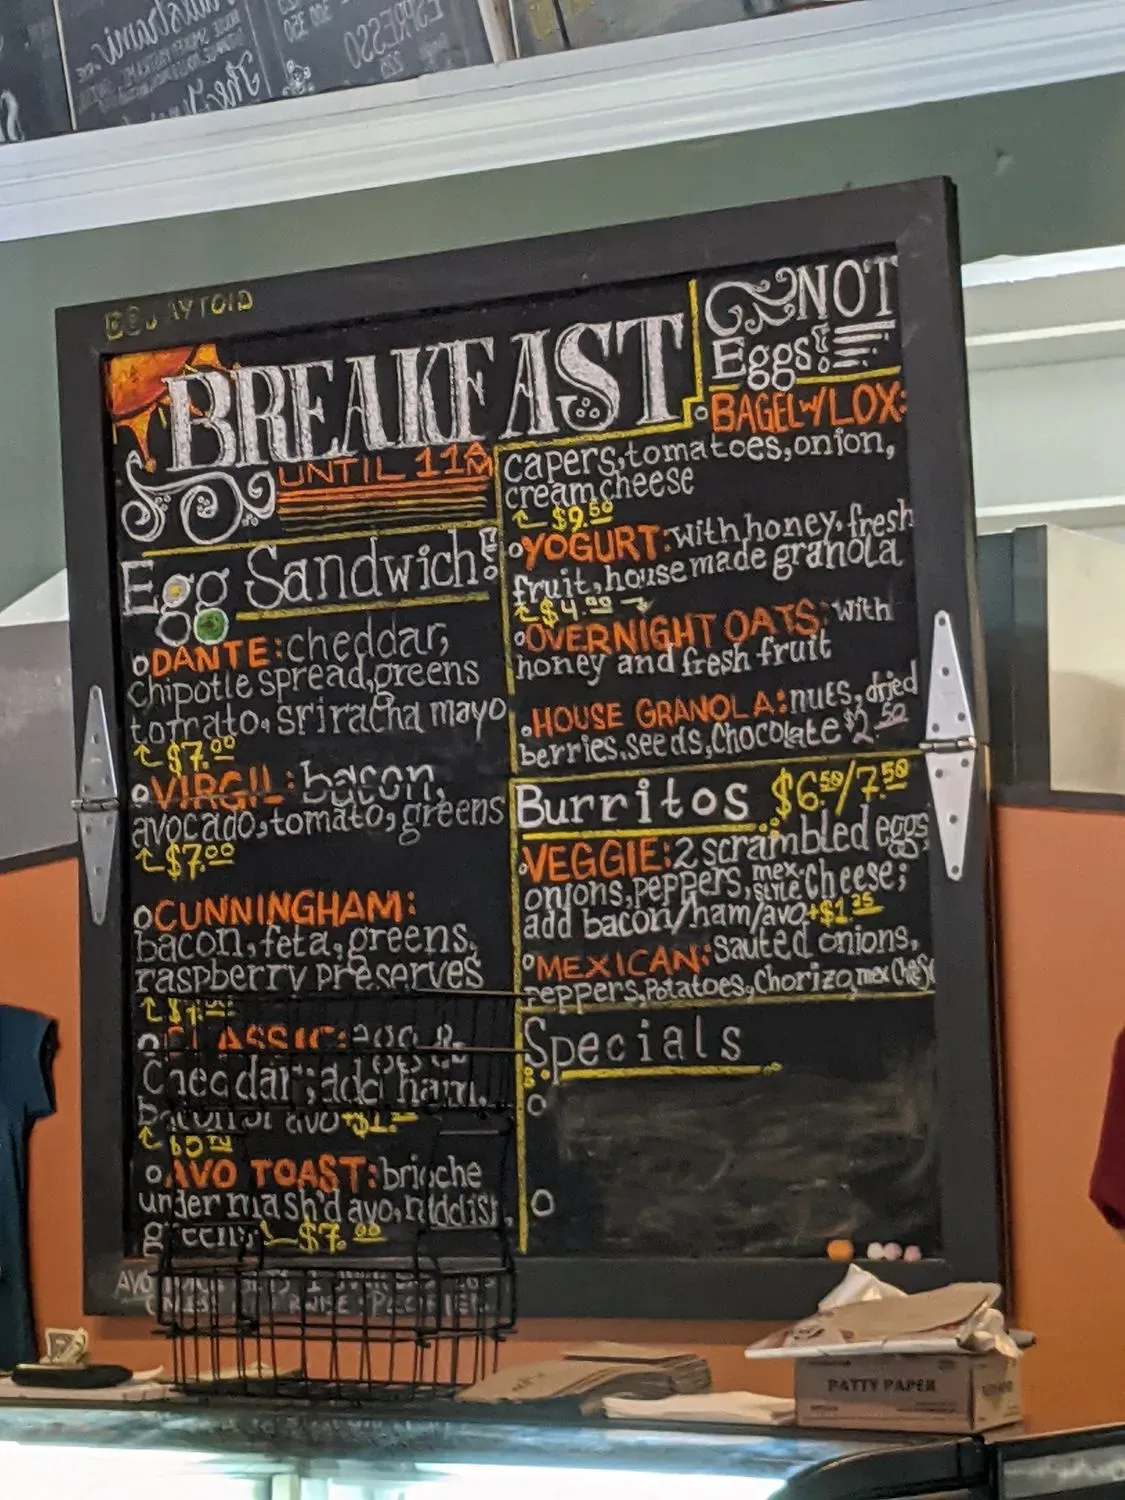 BREAKFAST
UNTIL 11AM
Egg Sandwich
DANTE: cheddar,
chipotle spread, greens
tomato, sriracha mayo
$7.00
VIRGIL: bacon,
avocado, tomato, greens
$7.00
CUNNINGHAM:
bacon, feta, greens,
raspberry preserves
CLASSIC: egg &
Cheddar; add ham,
bacon or avo +$1.
AVO TOAST: brioche
under mash'd avo,
greens $7.00
NOT
Eggs!
BAGEL W/LOX:
capers, tomatoes, onion,
creamcheese
$9.50
YOGURT: with honey, fresh
fruit, house made granola
$4.00
OVERNIGHT OATS: with
honey and fresh fruit
HOUSE GRANOLA: nuts, dried
berries, seeds, Chocolate $2.50
Burritos $6.50/7.50
VEGGIE: 2 scrambled eggs,
onions, peppers, mex-style cheese;
add bacon/ham/avo +$1.25
MEXICAN: sauted onions,
peppers, potatoes, Chorizo, mex
Specials
PATTY PAPER
ESPRESSO